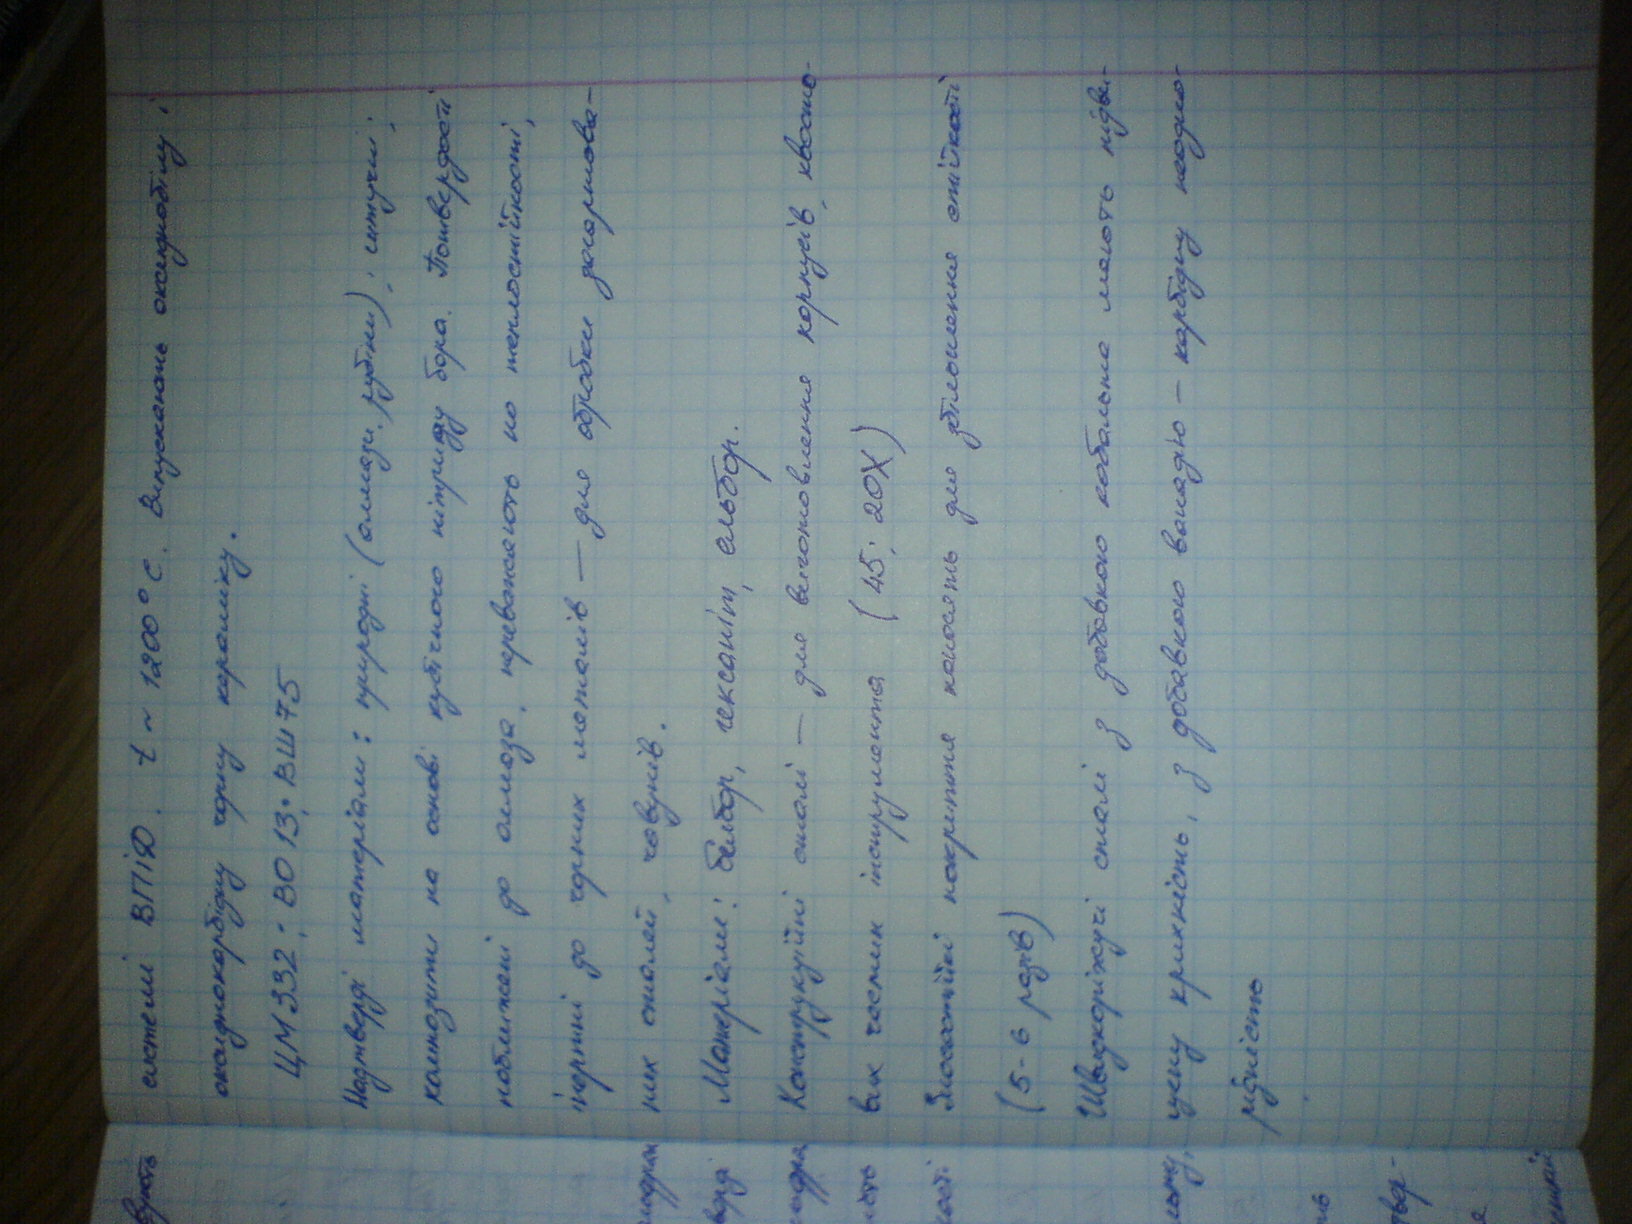 системі ВПІД. t ~ 1200°С. Випускають оксиднобілу і
оксиднокарбідну чорну кераміку.
ЦМ332; ВО13; ВШ75
Надтверді матеріали: природні (алмази, рубіни), штучні;
композити на основі кубічного нітриду бора. По твердості
наближені до алмаза, переважають по теплостійкості,
інертні до чорних металів — для обробки загартова-
них сталей, чавунів.
Матеріали: белбор, гексаніт, ельбор.
Конструкційні сталі — для виготовлення корпусів, хвосто-
вик частин інструмента (45; 20Х)
Зносостійкі покриття наносять для збільшення стійкості
(5-6 разів)
Швидкоріжучі сталі з добавкою кобальта мають підви-
щену крихкість, з добавкою ванадію – карбідну неодно-
рідністю
вують
твер-